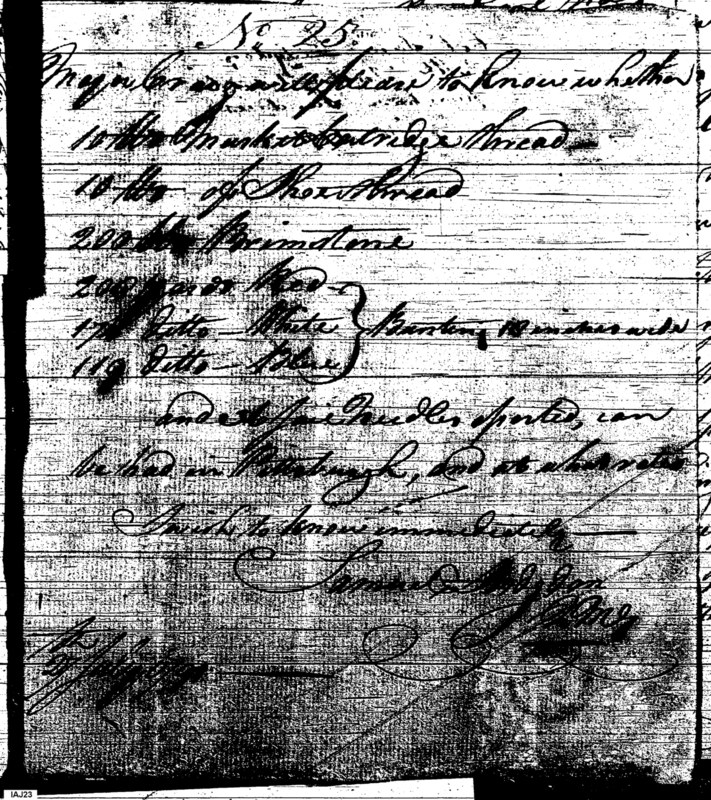 No 25.
Major Craig will please to know whether
10 lbs Musket Cartridge thread
10 lbs of Shoe thread
200 lbs Brimstone
200 yards Red
170 ditto – White } Bunting 18 inches wide
119 ditto – Blue
and Needles assorted, can
be had in Pittsburgh, and at what rates
I wish to know immediately
Samuel Hodgdon
QMG
July
IAJ23